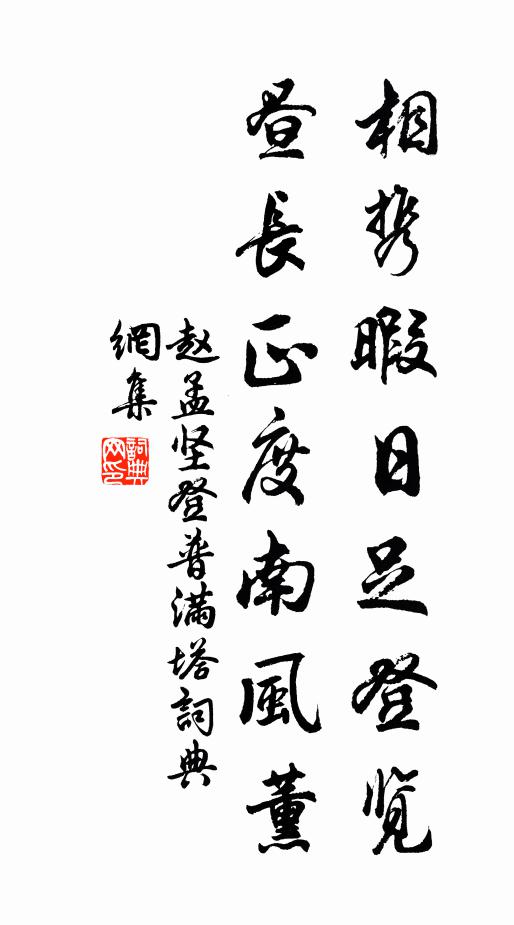 相携暇日足登览
昼長正度南風薰
赵孟坚登普滿塔詞典
網集
詞典网印